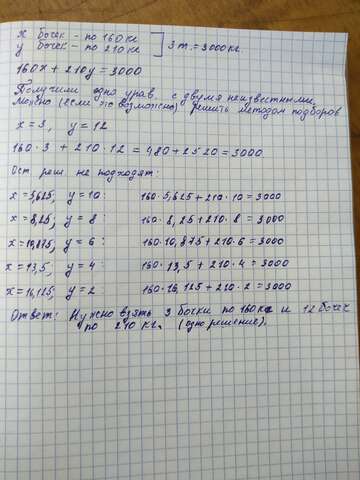 x бочек - по 160 кг
y бочек - по 210 кг ] 3 т. = 3000 кг.
160x + 210y = 3000
Получили одно урав. с двумя неизвестными,
можно (если это возможно) решить методом подборов
x = 3, y = 12
160 · 3 + 210 · 12 = 480 + 2520 = 3000
Ост. реш. не подходят:
x = 5,625, y = 10: 160 · 5,625 + 210 · 10 = 3000
x = 8,25, y = 8: 160 · 8,25 + 210 · 8 = 3000
x = 10,875, y = 6: 160 · 10,875 + 210 · 6 = 3000
x = 13,5, y = 4: 160 · 13,5 + 210 · 4 = 3000
x = 16,125, y = 2: 160 · 16,125 + 210 · 2 = 3000
Ответ: Нужно взять 3 бочки по 160 кг и 12 бочек
по 210 кг. (одно решение).